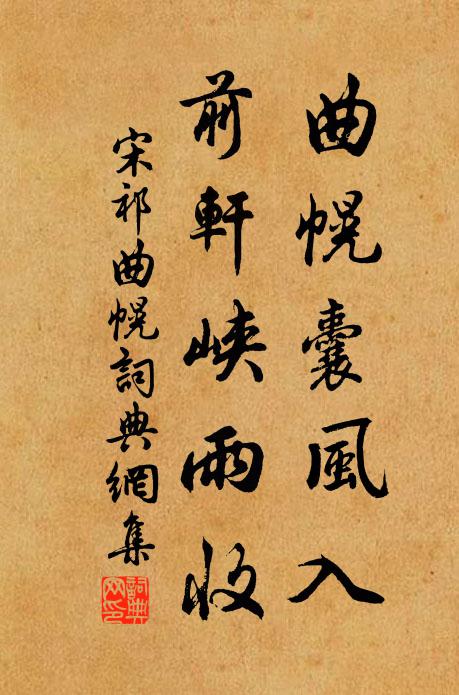 曲幌囊風入
前軒峽雨收
宋祁曲幌詞典網集
詞典網印